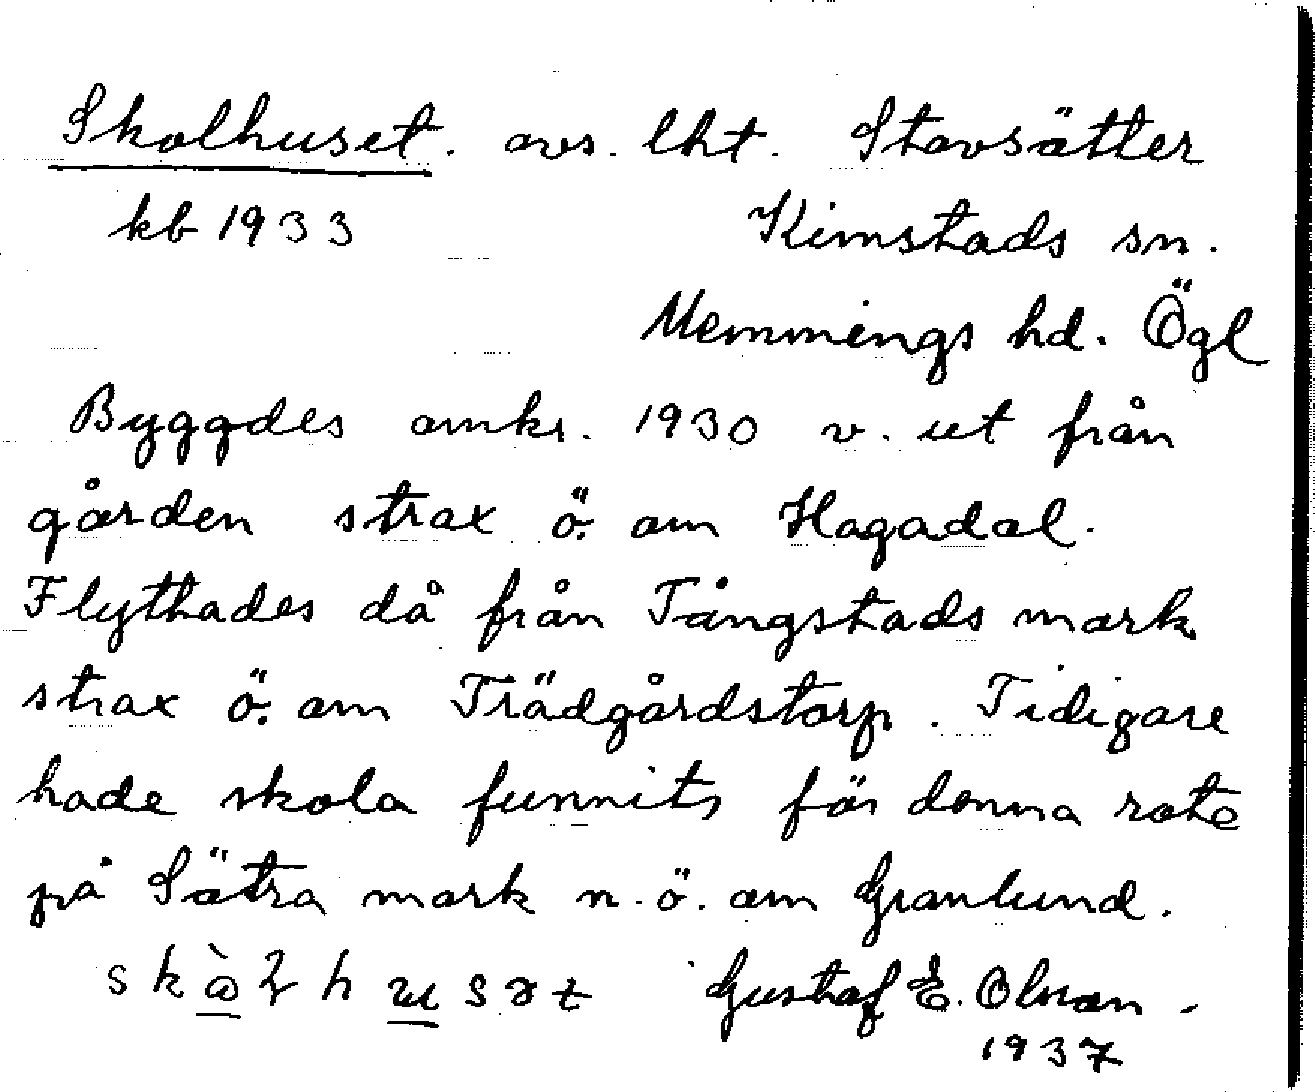 Skolhuset. avs. lht. Stavsätter
kb 1933 Kimstads sn.
Memmings hd. Ögl
Byggdes omkr. 1930 v. ut från
gården strax ö. om Hagadal.
Flyttades då från Tångstads mark
strax ö. om Trädgårdstorp. Tidigare
hade skola funnits för denna rote
på Sätra mark n.ö. om Granlund.
Gustaf E. Olson.
1937